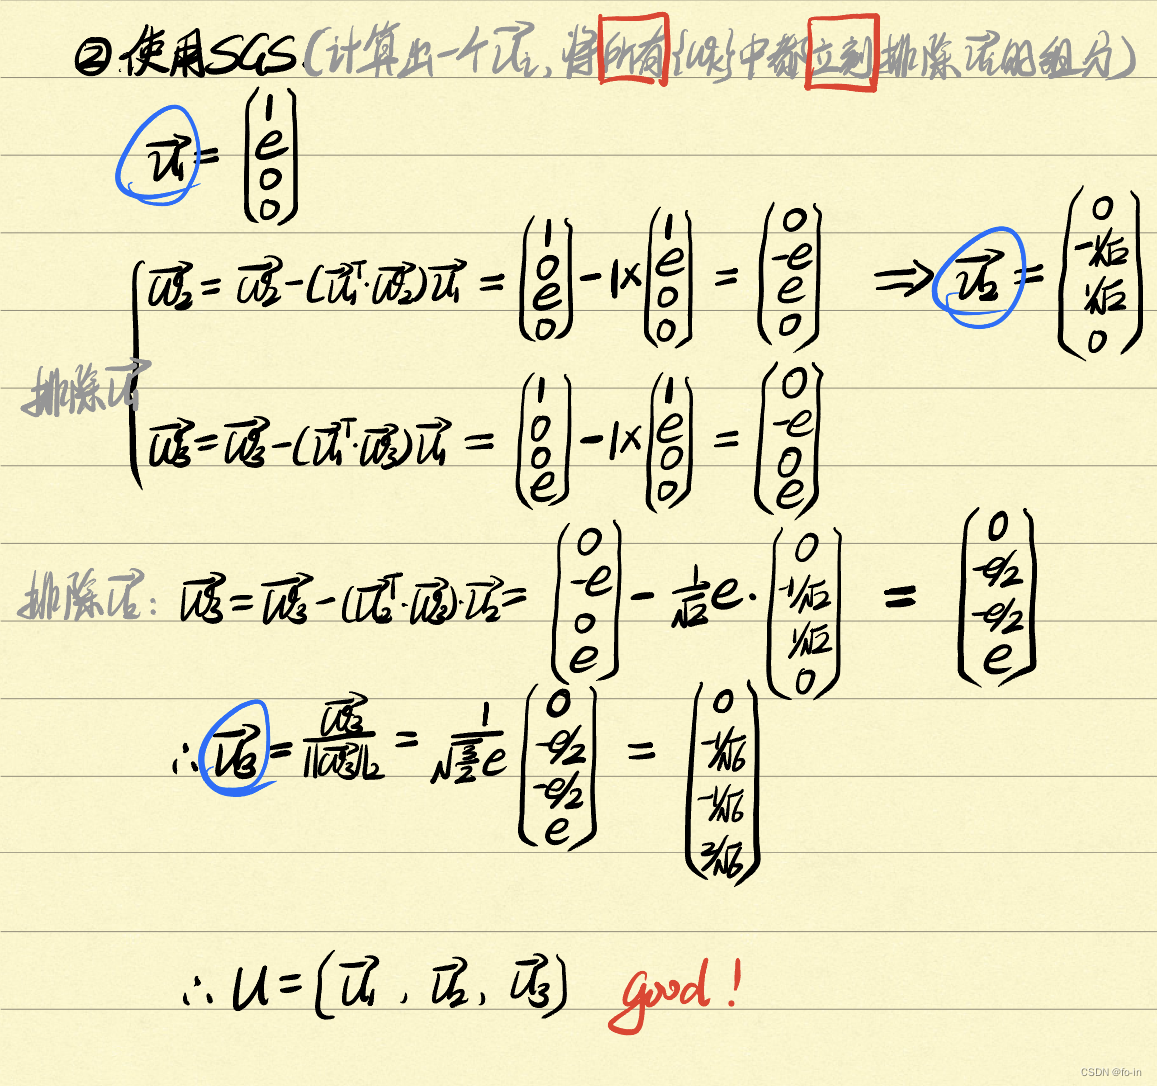 ② 使用SGS (计算出一个u⃗ᵢ, 将所有{w⃗ₖ}中都立刻排除u⃗ᵢ的组分)
u⃗₁ = (1 e 0 0)
排除u⃗₁ { w⃗₂ = w⃗₂ - (u⃗₁ᵀ·w⃗₂)u⃗₁ = (1 0 e 0) - 1×(1 e 0 0) = (0 -e e 0) ⇒ u⃗₂ = (0 -1/√2 1/√2 0)
w⃗₃ = w⃗₃ - (u⃗₁ᵀ·w⃗₃)u⃗₁ = (1 0 0 e) - 1×(1 e 0 0) = (0 -e 0 e)
排除u⃗₂: w⃗₃ = w⃗₃ - (u⃗₂ᵀ·w⃗₃)·u⃗₂ = (0 -e 0 e) - 1/√2 e·(0 -1/√2 1/√2 0) = (0 -e/2 -e/2 e)
∴ u⃗₃ = w⃗₃/||w⃗₃||₂ = 1/(√(3/2) e) (0 -e/2 -e/2 e) = (0 -1/√6 -1/√6 2/√6)
∴ U = (u⃗₁, u⃗₂, u⃗₃) good!
CSDN @fo-in